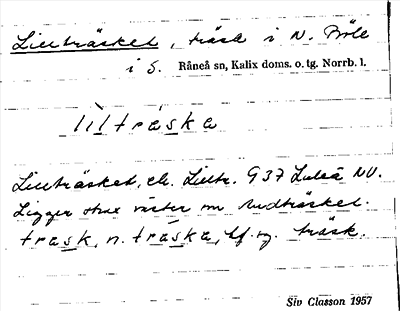 Lillträsket, träsk i N. Böle
i S. Råneå sn, Kalix doms. o. tg. Norrb. l.
lìltráska
Lillträsket, ek. Lilltr. 937 Luleå NV.
Ligger strax väster om Inditräsket.
trask, n. tráska, bf. sg. träsk.
Siv Classon 1957